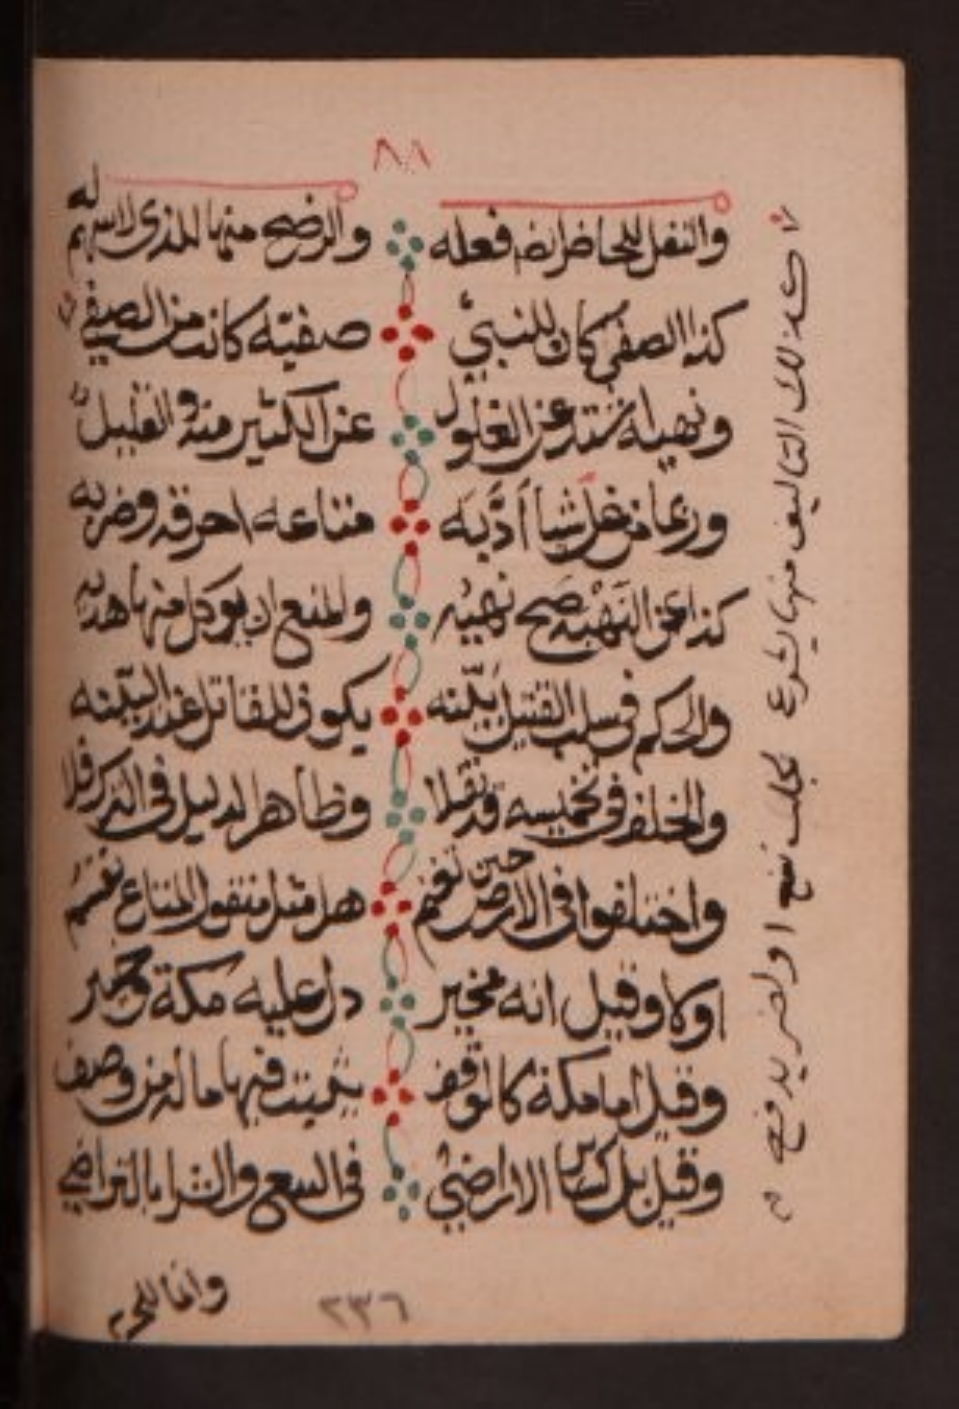 ٨٨١
والنفل للحاضران فعله والرضح منها للذي لا سهم له
كذا الصفي كان للنبي صفية كانت من الصفي
ونهيه عن الغلول عن الكثير منه والقليل
وربما من غل شيا أدبه متاعه احرقه وضربه
كذا عن النهبه صح نهيه والمنع ان يوكل منها هديه
والحكم في سلب القتيل بينه يكون للمقاتل عند البينه
والخلف في تخميسه قد نقلا وظاهر الدليل في الذكر فلا
واختلفوا في الارض حين تغنم هل مثل منقول المتاع تقسم
اولا وقيل انه مخير دل عليه مكة وخيبر
وقيل اما مكة كالوقف يثبت فيها ماله من وصف
وقيل بل كسائر الاراضي في البيع والشرا بالتراضي
كذلك التاليف منها يشرع بجلب نفع او لضر يدفع
وانما اللحم
٢٣٦